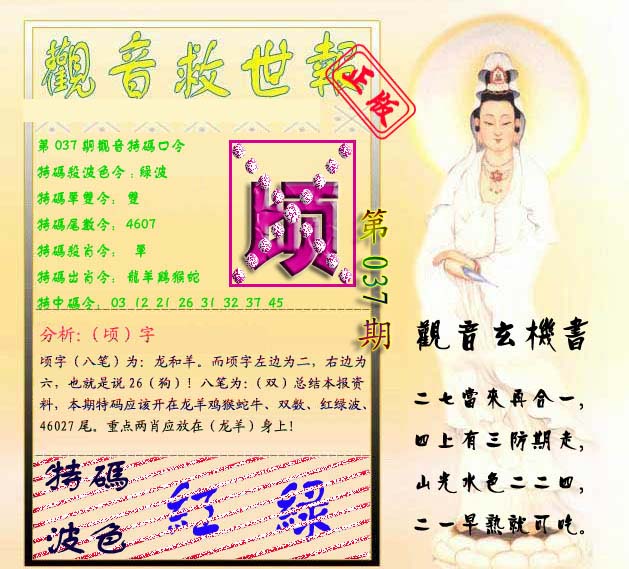 觀音救世報
正版
第037期觀音特碼口令
特碼殺波色令:綠波
特碼單雙令: 雙
特碼尾數令: 4607
特碼殺肖令: 單
特碼出肖令: 龍羊鷄猴蛇
特中碼令: 03 12 21 26 31 32 37 45
顷
第037期
分析:（顷）字
顷字（八笔）为：龙和羊。而顷字左边为二，右边为
六，也就是说26（狗）！八笔为：（双）总结本报资
料，本期特码应该开在龙羊鸡猴蛇牛、双数、红绿波、
46027尾。重点两肖应放在（龙羊）身上!
特碼
波色
紅 綠
觀音玄機書
二七當來再合一，
四上有三防期走，
山光水色二二四，
二一早熟就可吃。